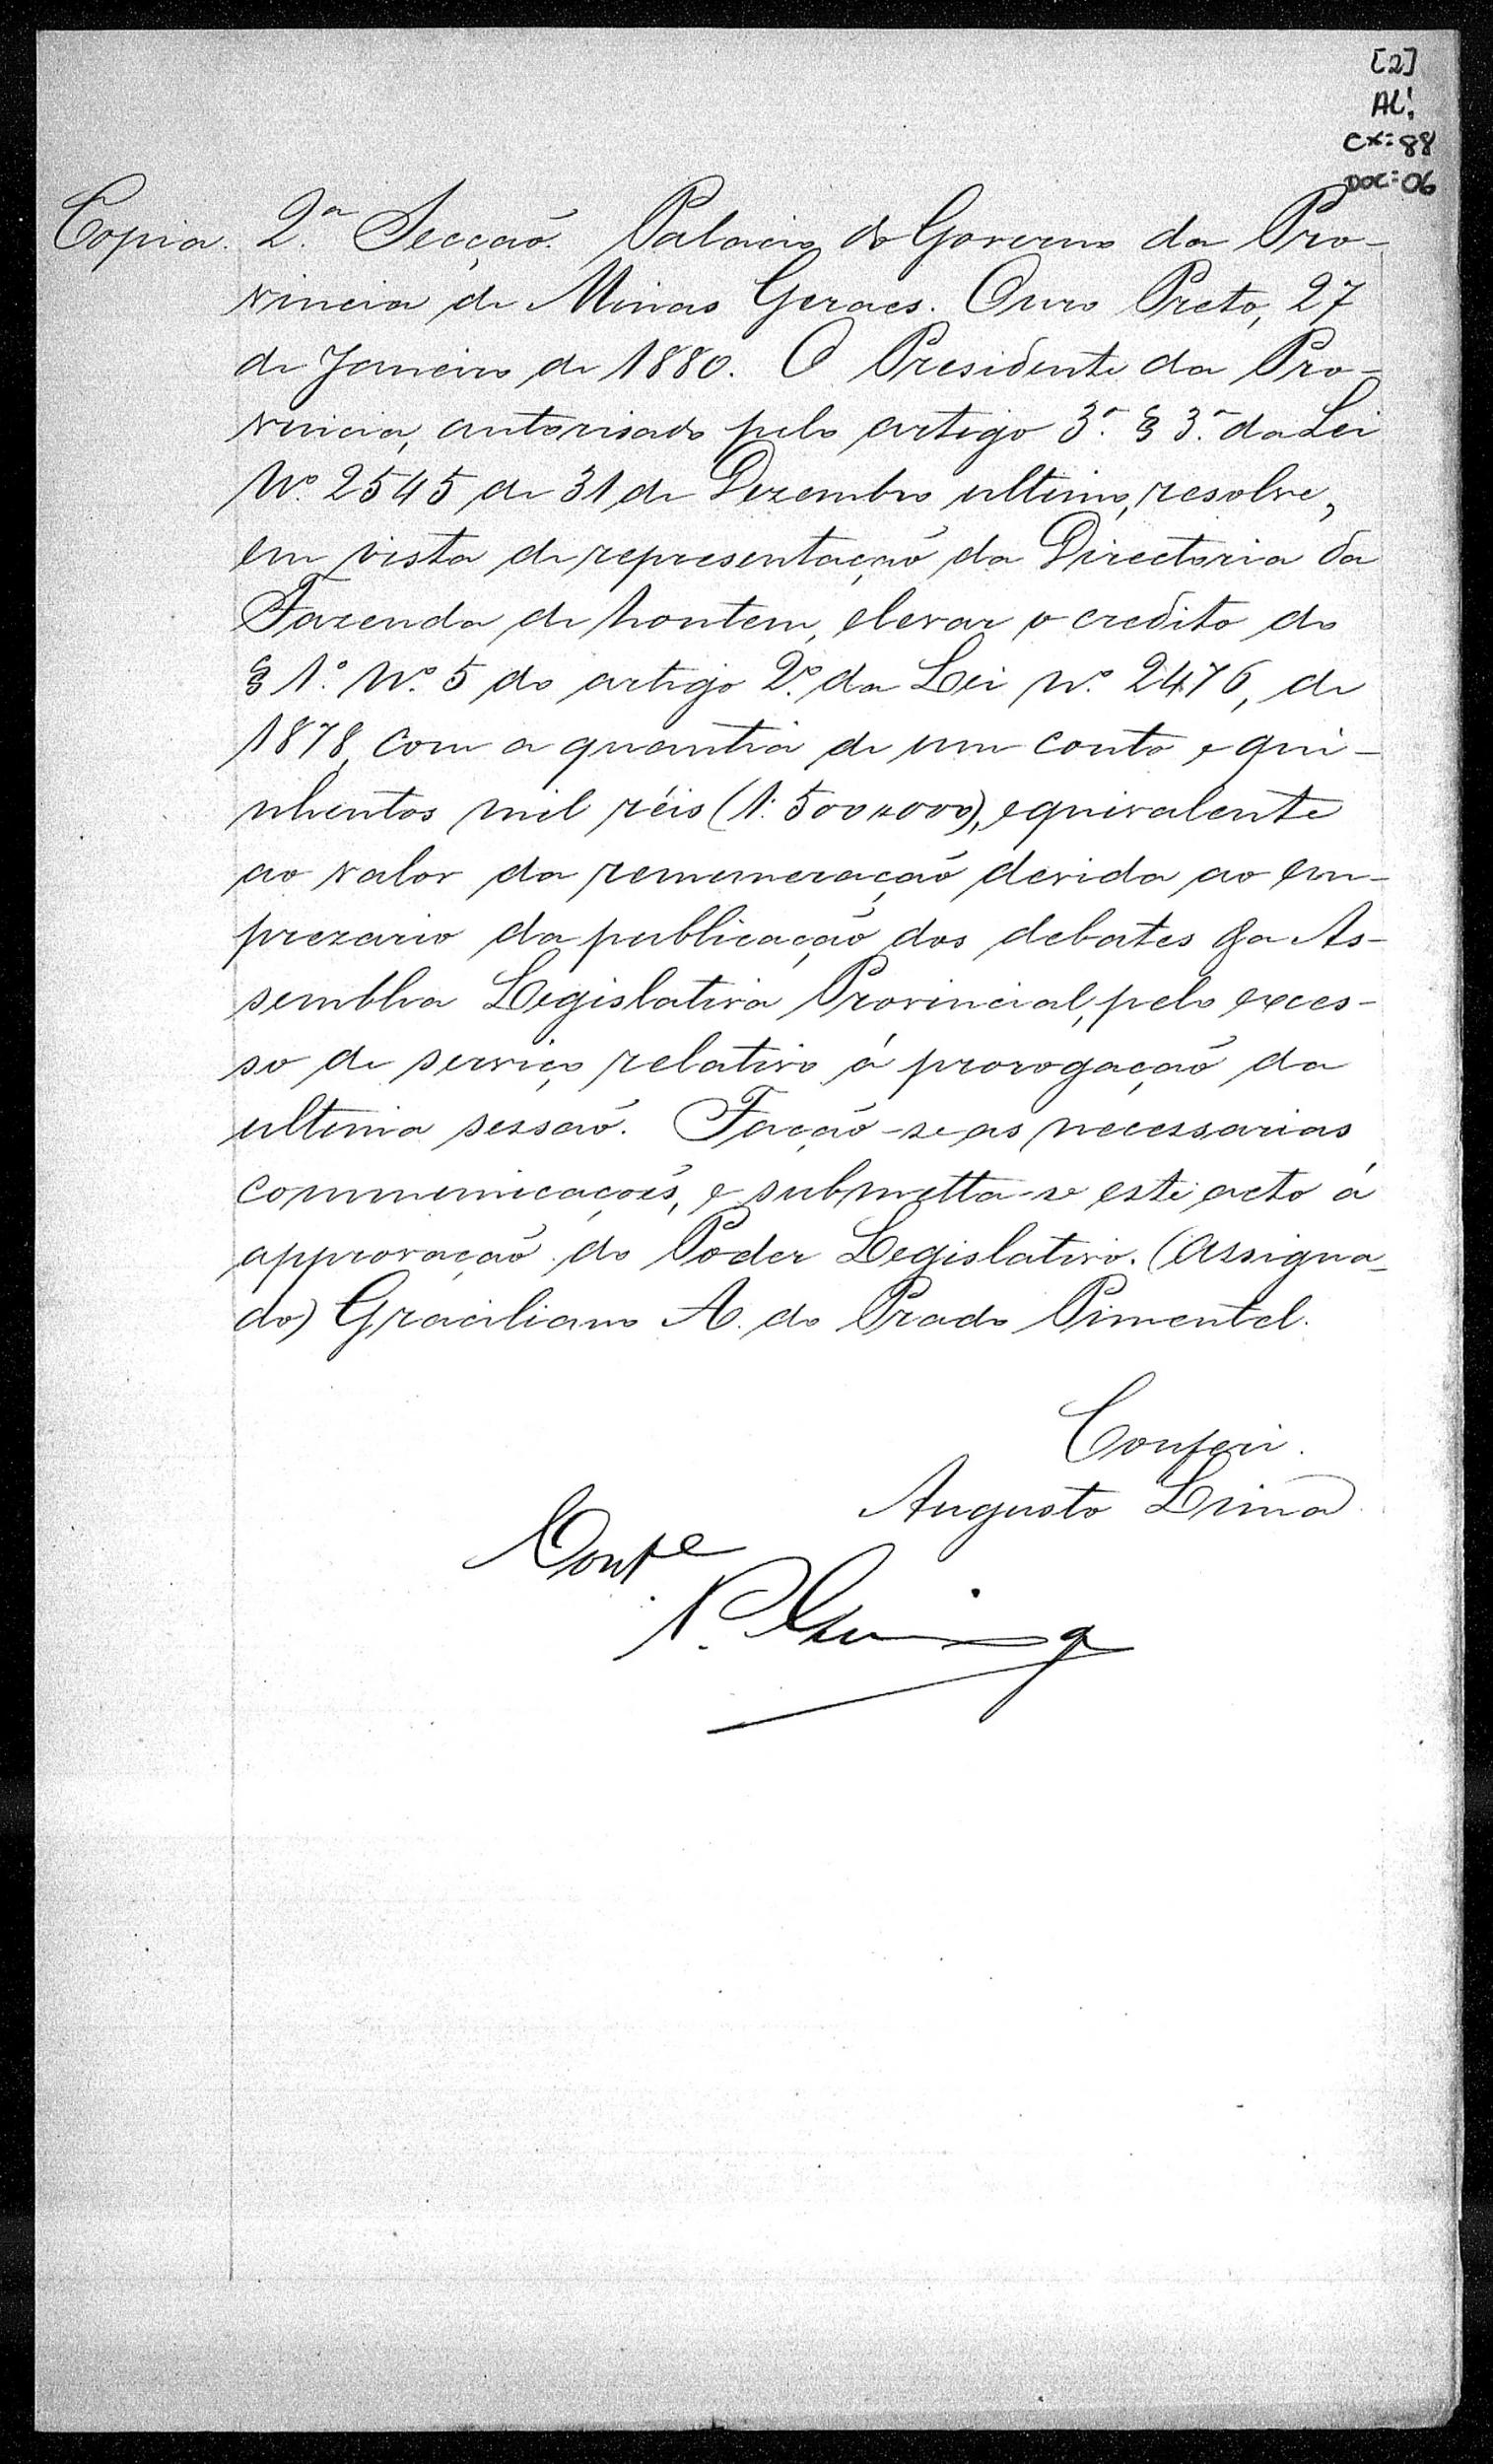 [2]
AL!
CX: 88
DOC: 06
Copia. 2.ª Secçaõ. Palacio do Governo da Pro-
vincia de Minas Geraes. Ouro Preto, 27
de Janeiro de 1880. O Presidente da Pro-
vincia, autorisado pelo artigo 3.º § 3.º da Lei
Nº. 2545 de 31 de Dezembro ultimo, resolve,
em vista de representaçaõ da Directoria da
Fazenda de hontem, elevar o credito do
§ 1.º Nº. 5 do artigo 2.º da Lei nº. 2476, de
1878, com a quantia de um conto e qui-
nhentos mil réis (1:500$000), equivalente
ao valor da remuneraçaõ devida ao em-
prezario da publicaçaõ dos debates da As-
semblea Legislativa Provincial, pelo exces-
so de serviço relativo á prorogaçaõ da
ultima sessaõ. Façaõ-se as necessarias
communicaçoẽs, e submetta-se este acto á
approvaçaõ do Poder Legislativo. (Assigna-
do) Graciliano A. do Prado Pimentel.
Conferi.
Augusto Lima
Conf.e